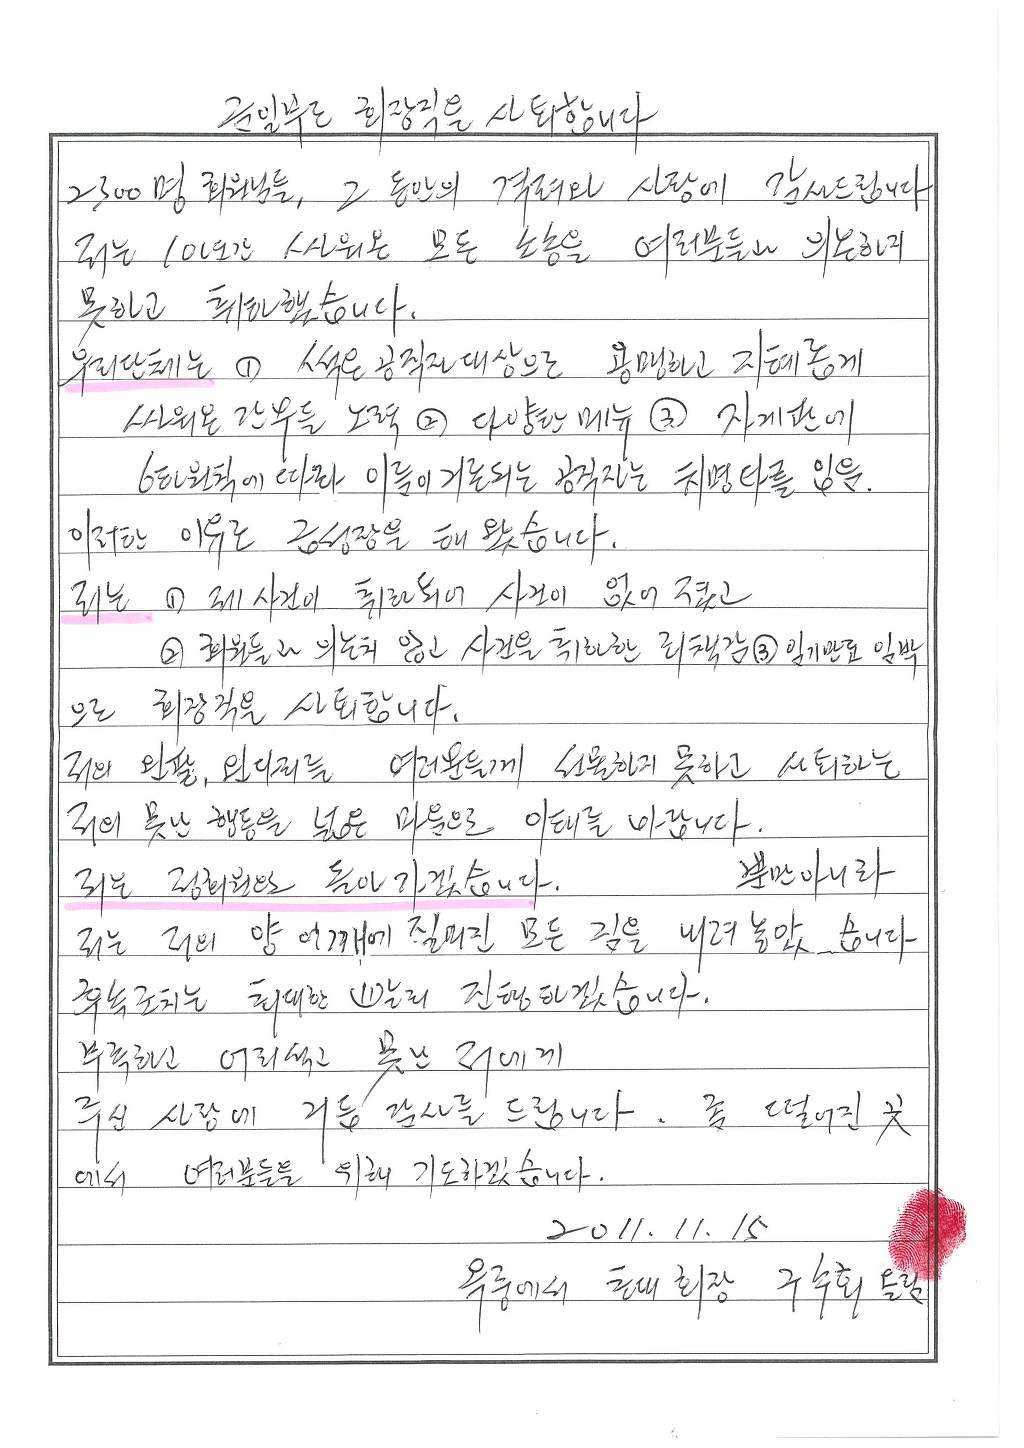 금일부로 회장직을 사퇴합니다
2300명 회원님들, 그 동안의 격려와 사랑에 감사드립니다
저는 10년간 싸워온 모든 소송을 여러분들과 의논하지
못하고 취하했습니다.
우리단체는 ① 썩은공직자대상으로 용맹하고 지혜롭게
싸워온 간부들 노력 ② 다양한메뉴 ③ 자게판에
6하원칙에 따라 이름이거론되는 공직자는 치명타를 입음.
이러한 이유로 급성장을 해 왔습니다.
저는 ① 제 사건이 취하되어 사건이 없어 졌고
② 회원들과 의논치 않고 사건을 취하한 죄책감 ③ 임기만료 임박
으로 회장직을 사퇴합니다.
저의 왼팔, 왼다리를 여러분들께 선물하지 못하고 사퇴하는
저의 못난 행동을 넓은 마음으로 이해를 바랍니다.
저는 정회원으로 돌아가겠습니다. 뿐만아니라
저는 저의 양 어깨에 짊머진 모든 짐을 내려놓았 습니다
후속조치는 최대한 빨리 진행하겠습니다.
부족하고 어리석고 못난 저에게
주신 사랑에 거듭 감사를 드립니다. 좀 떨어진 곳
에서 여러분들을 위해 기도하겠습니다.
2011.11.15
옥중에서 초대 회장 구수회 올림